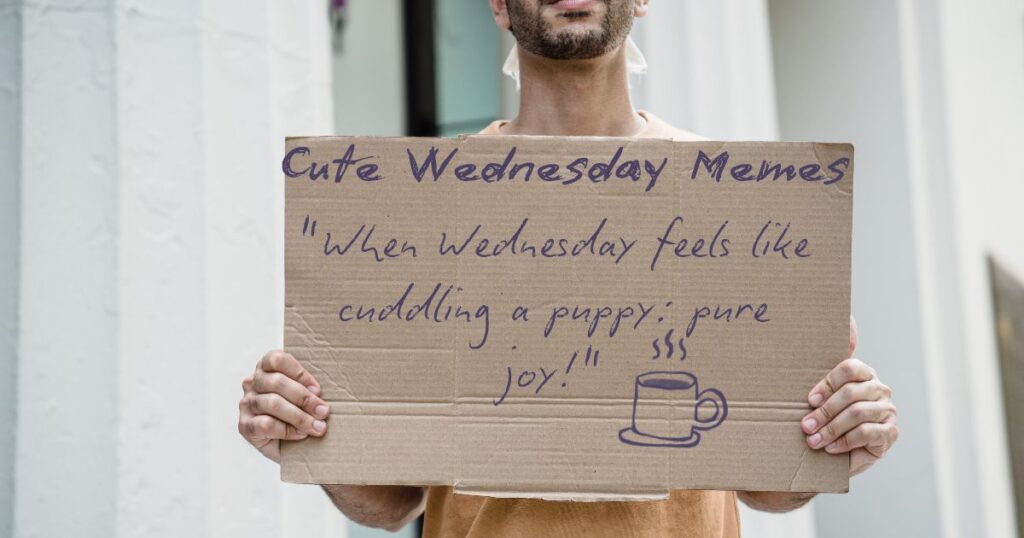 Cute Wednesday Memes
"When Wednesday feels like
cuddling a puppy: pure
joy!"